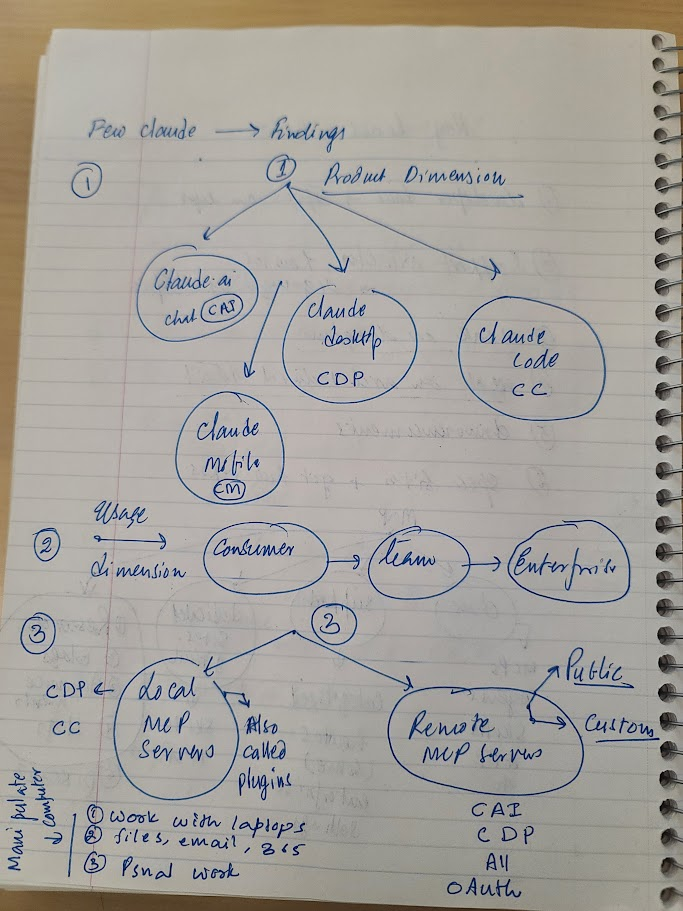 Few claude → findings
①
① Product Dimension
Claude.ai
chat CAI
Claude
desktop
CDP
Claude
Code
CC
Claude
Mobile
CM
②
Usage
dimension
Consumer → team → Enterprise
③
③
CDP ←
CC
Local
MCP
Servers
Also
called
plugins
Remote
MCP Servers
Public
Custom
CAI
CDP
All
OAuth
Manipulate
computer
① work with laptops
② files, email, 365
③ Psnal work